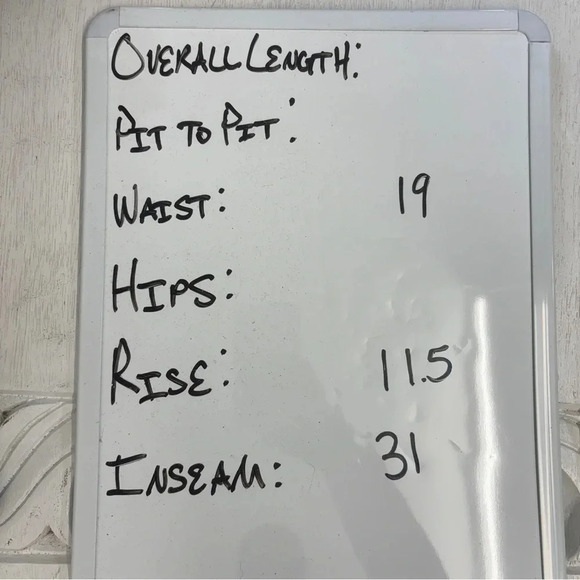 OVERALL LENGTH:
PIT TO PIT:
WAIST: 19
HIPS:
RISE: 11.5
INSEAM: 31